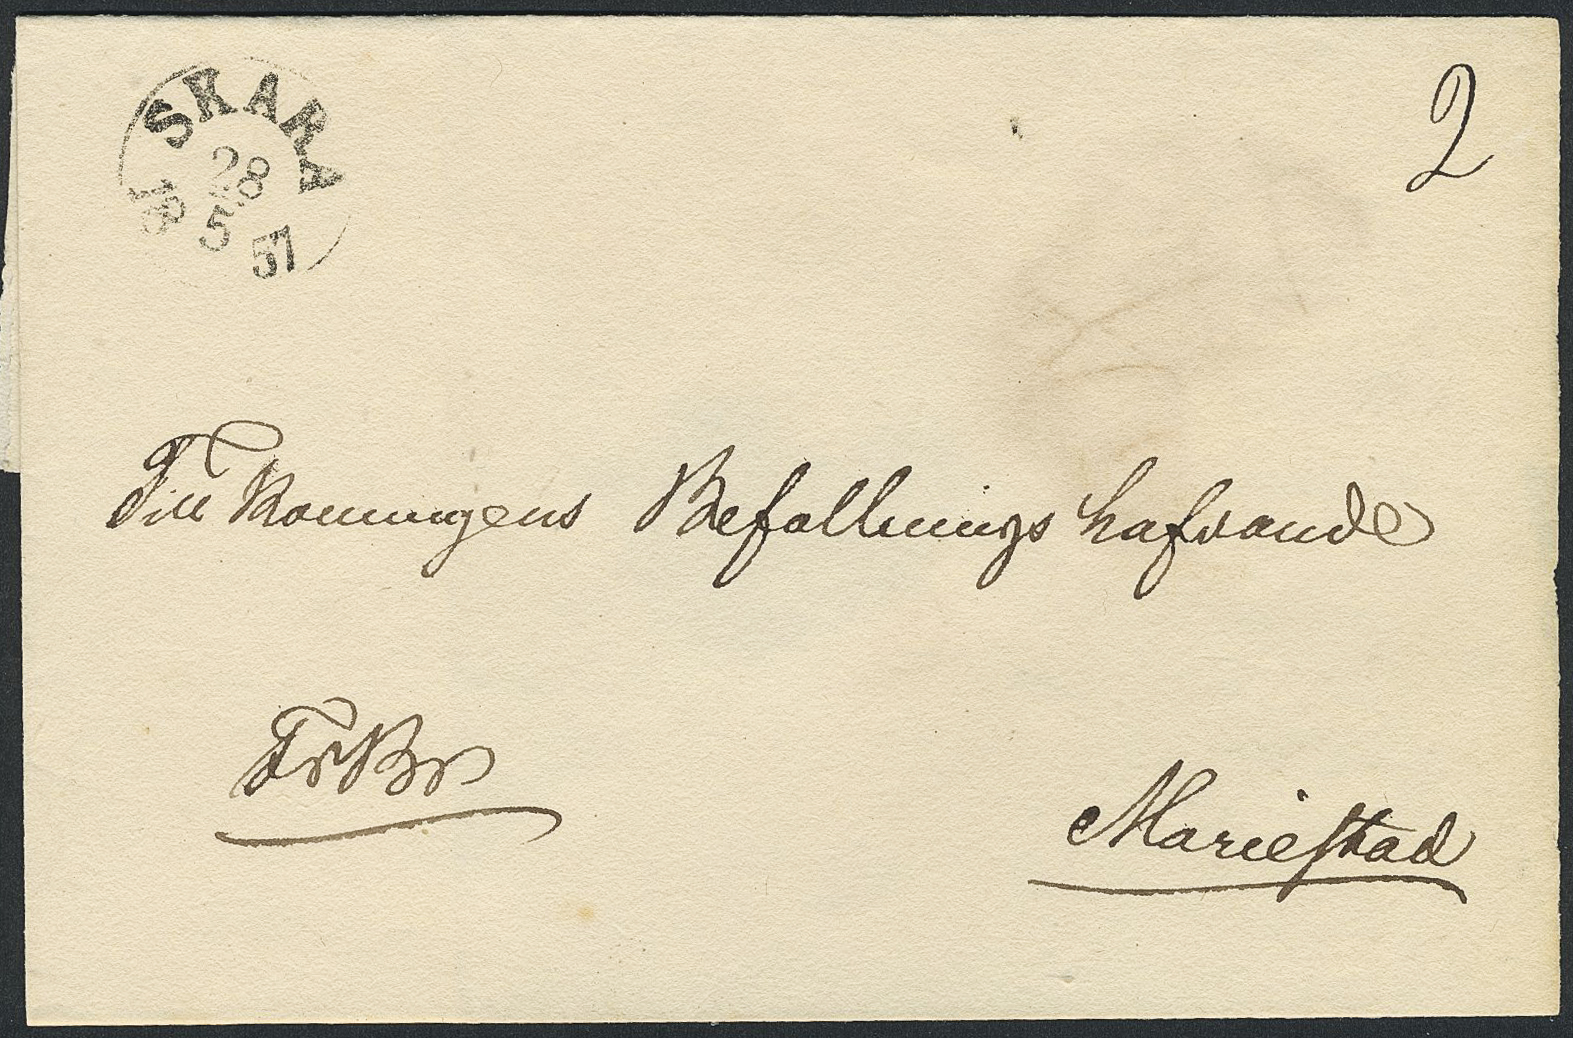 SKARA
28
5
18 57
2
Till Konungens Befallnings hafvande
FrBr
Mariestad